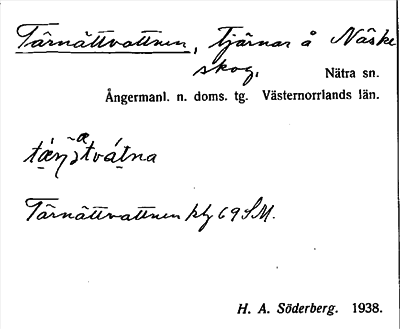 Tärnättvattnen, Tjärnar å Näske
skog.
Nätra sn.
Ångermanl. n. doms. tg. Västernorrlands län.
Tärnättvattnen 69 SM.
H. A. Söderberg. 1938.